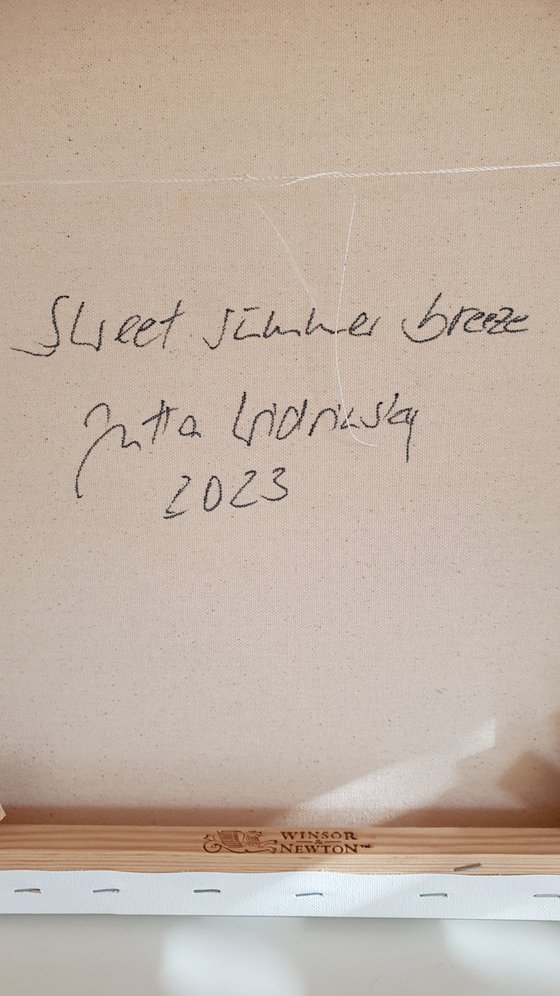 Sweet summer breeze
Jutta Widrinsky
2023
WINSOR
&
NEWTON™